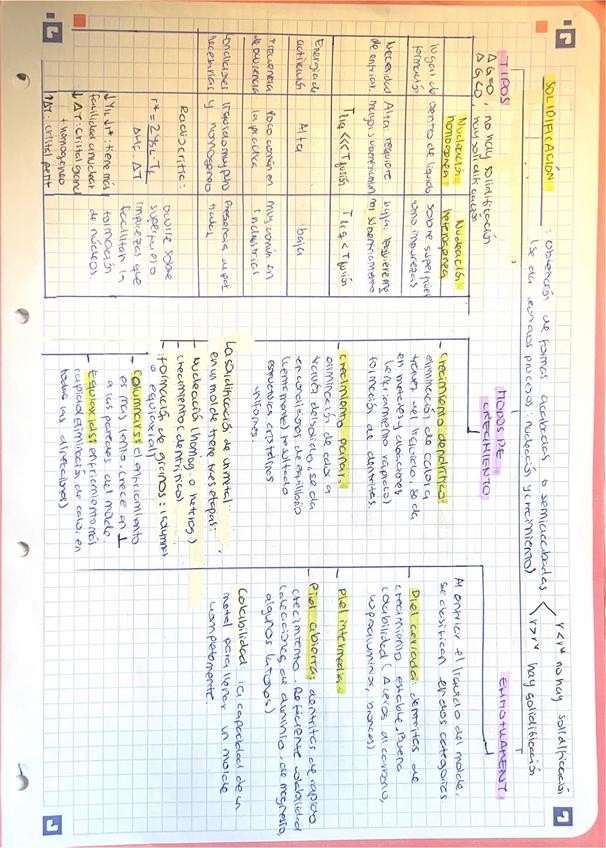 SOLIDIFICACION: obtención de formas acabadas o semiacabadas
(se da con dos procesos: nucleación y crecimiento)
r<r* no hay solidificación
r>r* hay solidificación
ΔG=0, no hay solidificación
ΔG<0, hay solidificación
TIPOS
Nucleación homogenea
Nucleación heterogenea
lugar de formación
dentro de líquido
sobre superficies como impurezas
Necesidad de enfriar
Alta, requiere mayor
baja, requiere
Tliq << Tfusión
Tliq < Tfusión
Energía de activación
Alta
baja
Frecuencia de ocurrencia
Poco común en la práctica
muy común en industrias
condiciones necesarias
líquido muy puro y homogeneo
Presencia
Radio crítico:
r* =
ocurre sobre
superficie o
impurezas que
facilitan la
formación
de núcleos.
facilidad a nuclear
+ homogeneo
MODOS DE
CRECIMIENTO
- Crecimiento dendrítico:
eliminación de calor a
través del líquido, se da
en metales y aleaciones
(enfriamiento rápido)
formación de dentritas.
- crecimiento planar:
eliminación de calor a
través del sólido, se da
en condiciones de equilibrio
(lentamente) resultado
estructuras cristalinas
uniformes.
La solidificación de un metal
en un molde tiene tres etapas:
- nucleación (homog. o heterog.)
- crecimiento (dentritico)
- formación de granos: (columnar
o equiaxial)
- Columnares: el enfriamiento
es más lento. crece en ⊥
a las paredes del molde
- Equiaxiales: enfriamiento más
rápido (eliminación de calor en
todas las direcciones)
EMMOTLLAMENT
Al enfriar el líquido del molde,
se clasifican en dos categorías
Piel cerrada: dentritas de
crecimiento estable. Buena
colabilidad (Aceros al carbono,
cuproaluminios, bronces)
Piel intermedia.
Piel abierta: dentritas de rápido
crecimiento. Deficiente colabilidad
(aleaciones de aluminio, de magnesio,
algunos latones)
Colabilidad: la capacidad de un
metal para llenar un molde
completamente.